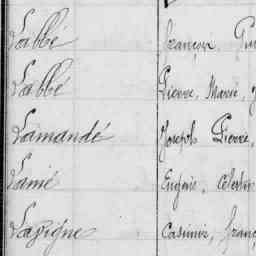 Labbé François,
Labbé Pierre, Marie,
Lamandé Joseph Pierre,
Lamé Eugène, Célestin
Lavigne Casimir, Franç